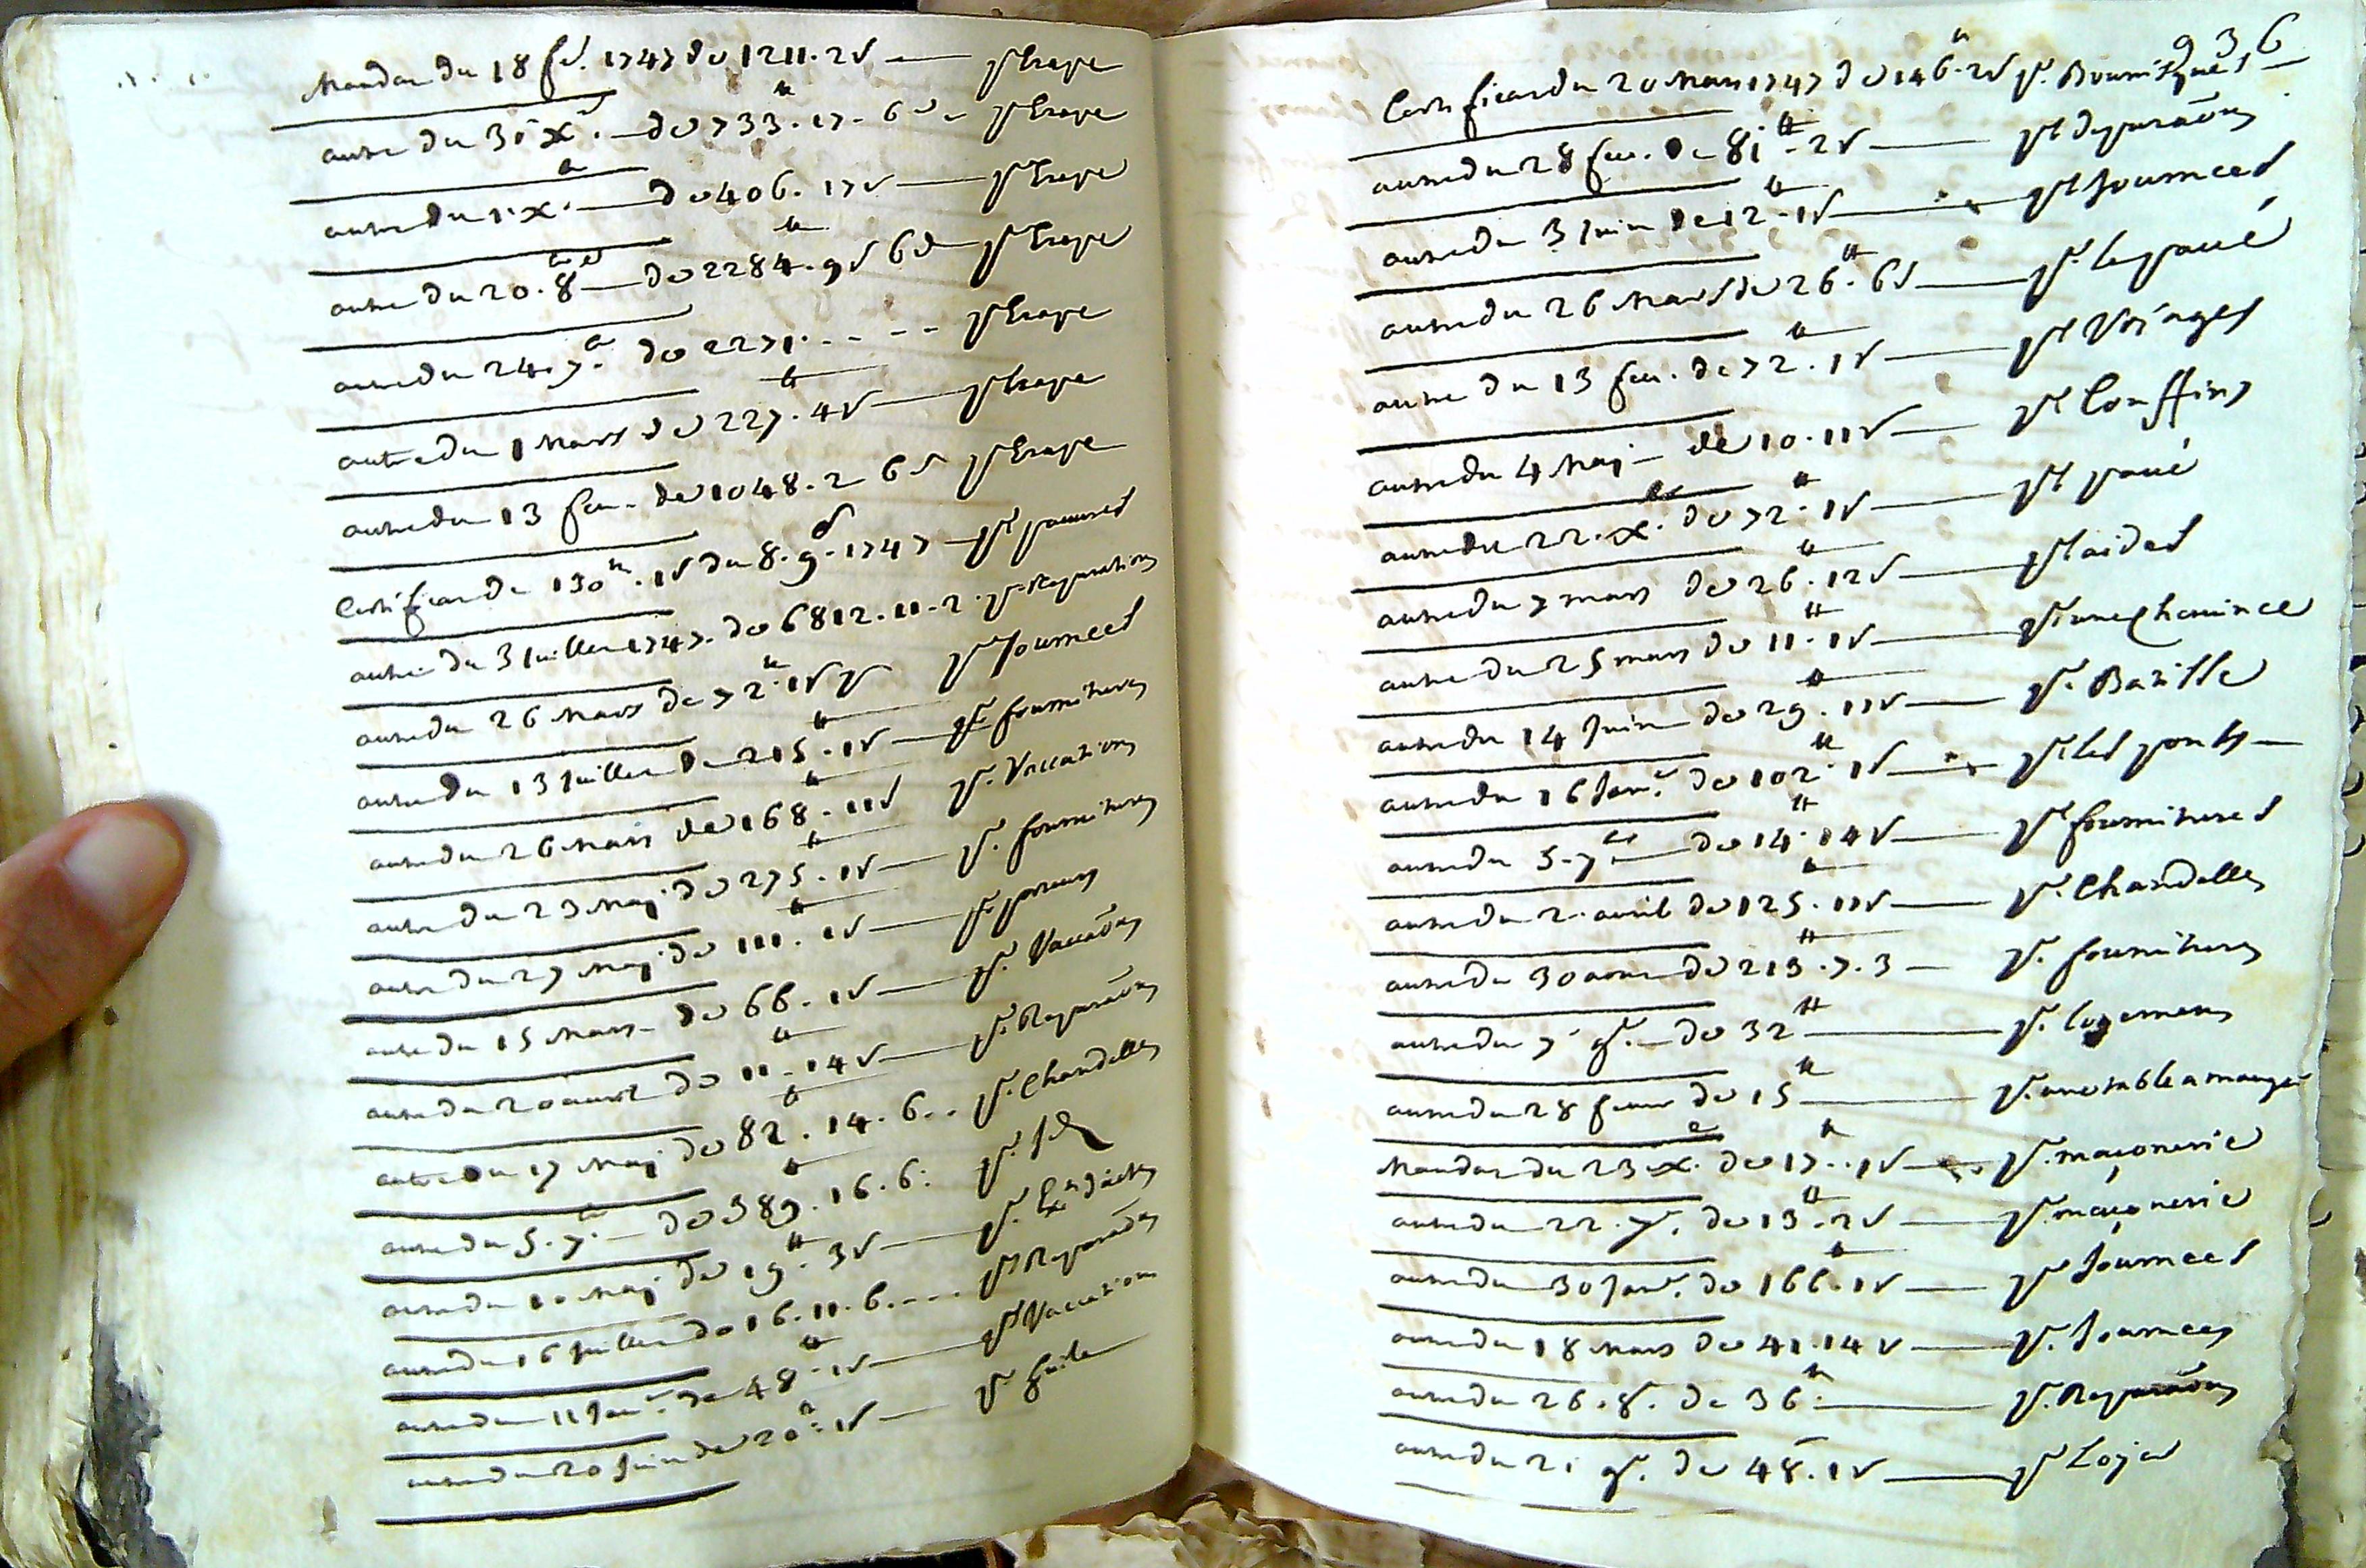 Mandat du 18 fev. 1747 de 1211. 2 s — pr Etape
autre du 31 xre. — de 733 tt. 17. 6 d — pr Etape
autre du 1 xre. — de 406. 17 s — pr Etape
autre du 20. 8bre — de 2284 tt. 9 s 6 d — pr Etape
autre du 24. 7re. de 2271 . . . . pr Etape
autre du 1 Mars de 227 tt. 4 s — pr Etape
autre du 13 fev. de 1048. 2 6 d pr Etape
Certificat de 130 tt. 1 s du 8. 9re. 1747 — pr pauvres
autre du 3 Juillet 1747. de 6812. 11. 2. pr Reparations
autre du 26 Mars de 72 tt. 1 s pr Journees
autre du 13 Juillet de 215 tt. 1 s — pr fournitures
autre du 26 Mars de 168 tt. 11 s pr. Vaccations
autre du 23 Maj de 275 tt. 1 s — pr. fournitures
autre du 27 Maj de 111 tt. 1 s — pr.
autre du 15 Mars — de 66. 1 s — pr. Vaccaons
autre du 20 aoust de 11 tt. 14 s — pr. Reparaons
autre du 17 Maj de 82 tt. 14. 6 . . pr. Chandelles
autre du 5. 7re. — de 389 tt. 16. 6. pr. Id
autre du 10 Maj de 19 tt. 3 s — pr.
autre du 16 Juillet de 16. 11. 6. . . . pr Reparaons
autre du 11 Janr. de 48 tt. 1 s — pr Vaccations
autre du 20 Juin de 20 tt. 1 s — pr huile
936
Certificat du 20 Mars 1747 de 146 tt. 2 s pr.
autre du 28 fev. de 81 tt. 2 s — pr deparaons
autre du 3 Juin de 12 tt. 1 s — pr Journees
autre du 26 Mars de 26 tt. 6 s — pr. le pavé
autre du 13 fev. de 72 tt. 1 s — pr Voiages
autre du 4 Maj — de 10. 11 s — pr Couffins
autre du 22. xre. de 72 tt. 1 s — pr pavé
autre du 7 mars de 26 tt. 12 s — pr aides
autre du 25 mars de 11 tt. 1 s — pr une cheminee
autre du 14 Juin de 29 tt. 11 s — pr. Bazille
autre du 16 Janr. de 102 tt. 1 s — pr les ponts —
autre du 5. 7re — de 14 tt. 14 s — pr fournitures
autre du 2. avril de 125 tt. 11 s — pr. Chandelles
autre du 30 aoust de 213 tt. 7. 3 — pr. fournitures
autre du 7 9r. — de 32 tt — pr. logement
autre du 28 fevr de 15 tt — pr. une table a manger
Mandat du 23 xre. de 17 tt. 1 s — pr. maçonerie
autre du 22. 7r. de 13 tt. 2 s — pr. maçonerie
autre du 30 Janr. de 166 tt. 1 s — pr Journees
autre du 18 Mars de 41. 14 s — pr. Journees
autre du 26. 8r. de 36 tt. — pr. Reparaons
autre du 21 9r. de 48. 1 s — pr Loyer